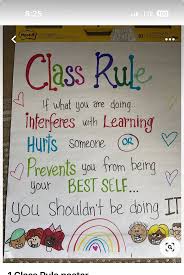 8:25
LTE
Class Rule
If what you are doing
Interferes with Learning
Hurts someone OR
Prevents you from being
your BEST SELF...
you Shouldn't be doing IT
1 Class Rule poster